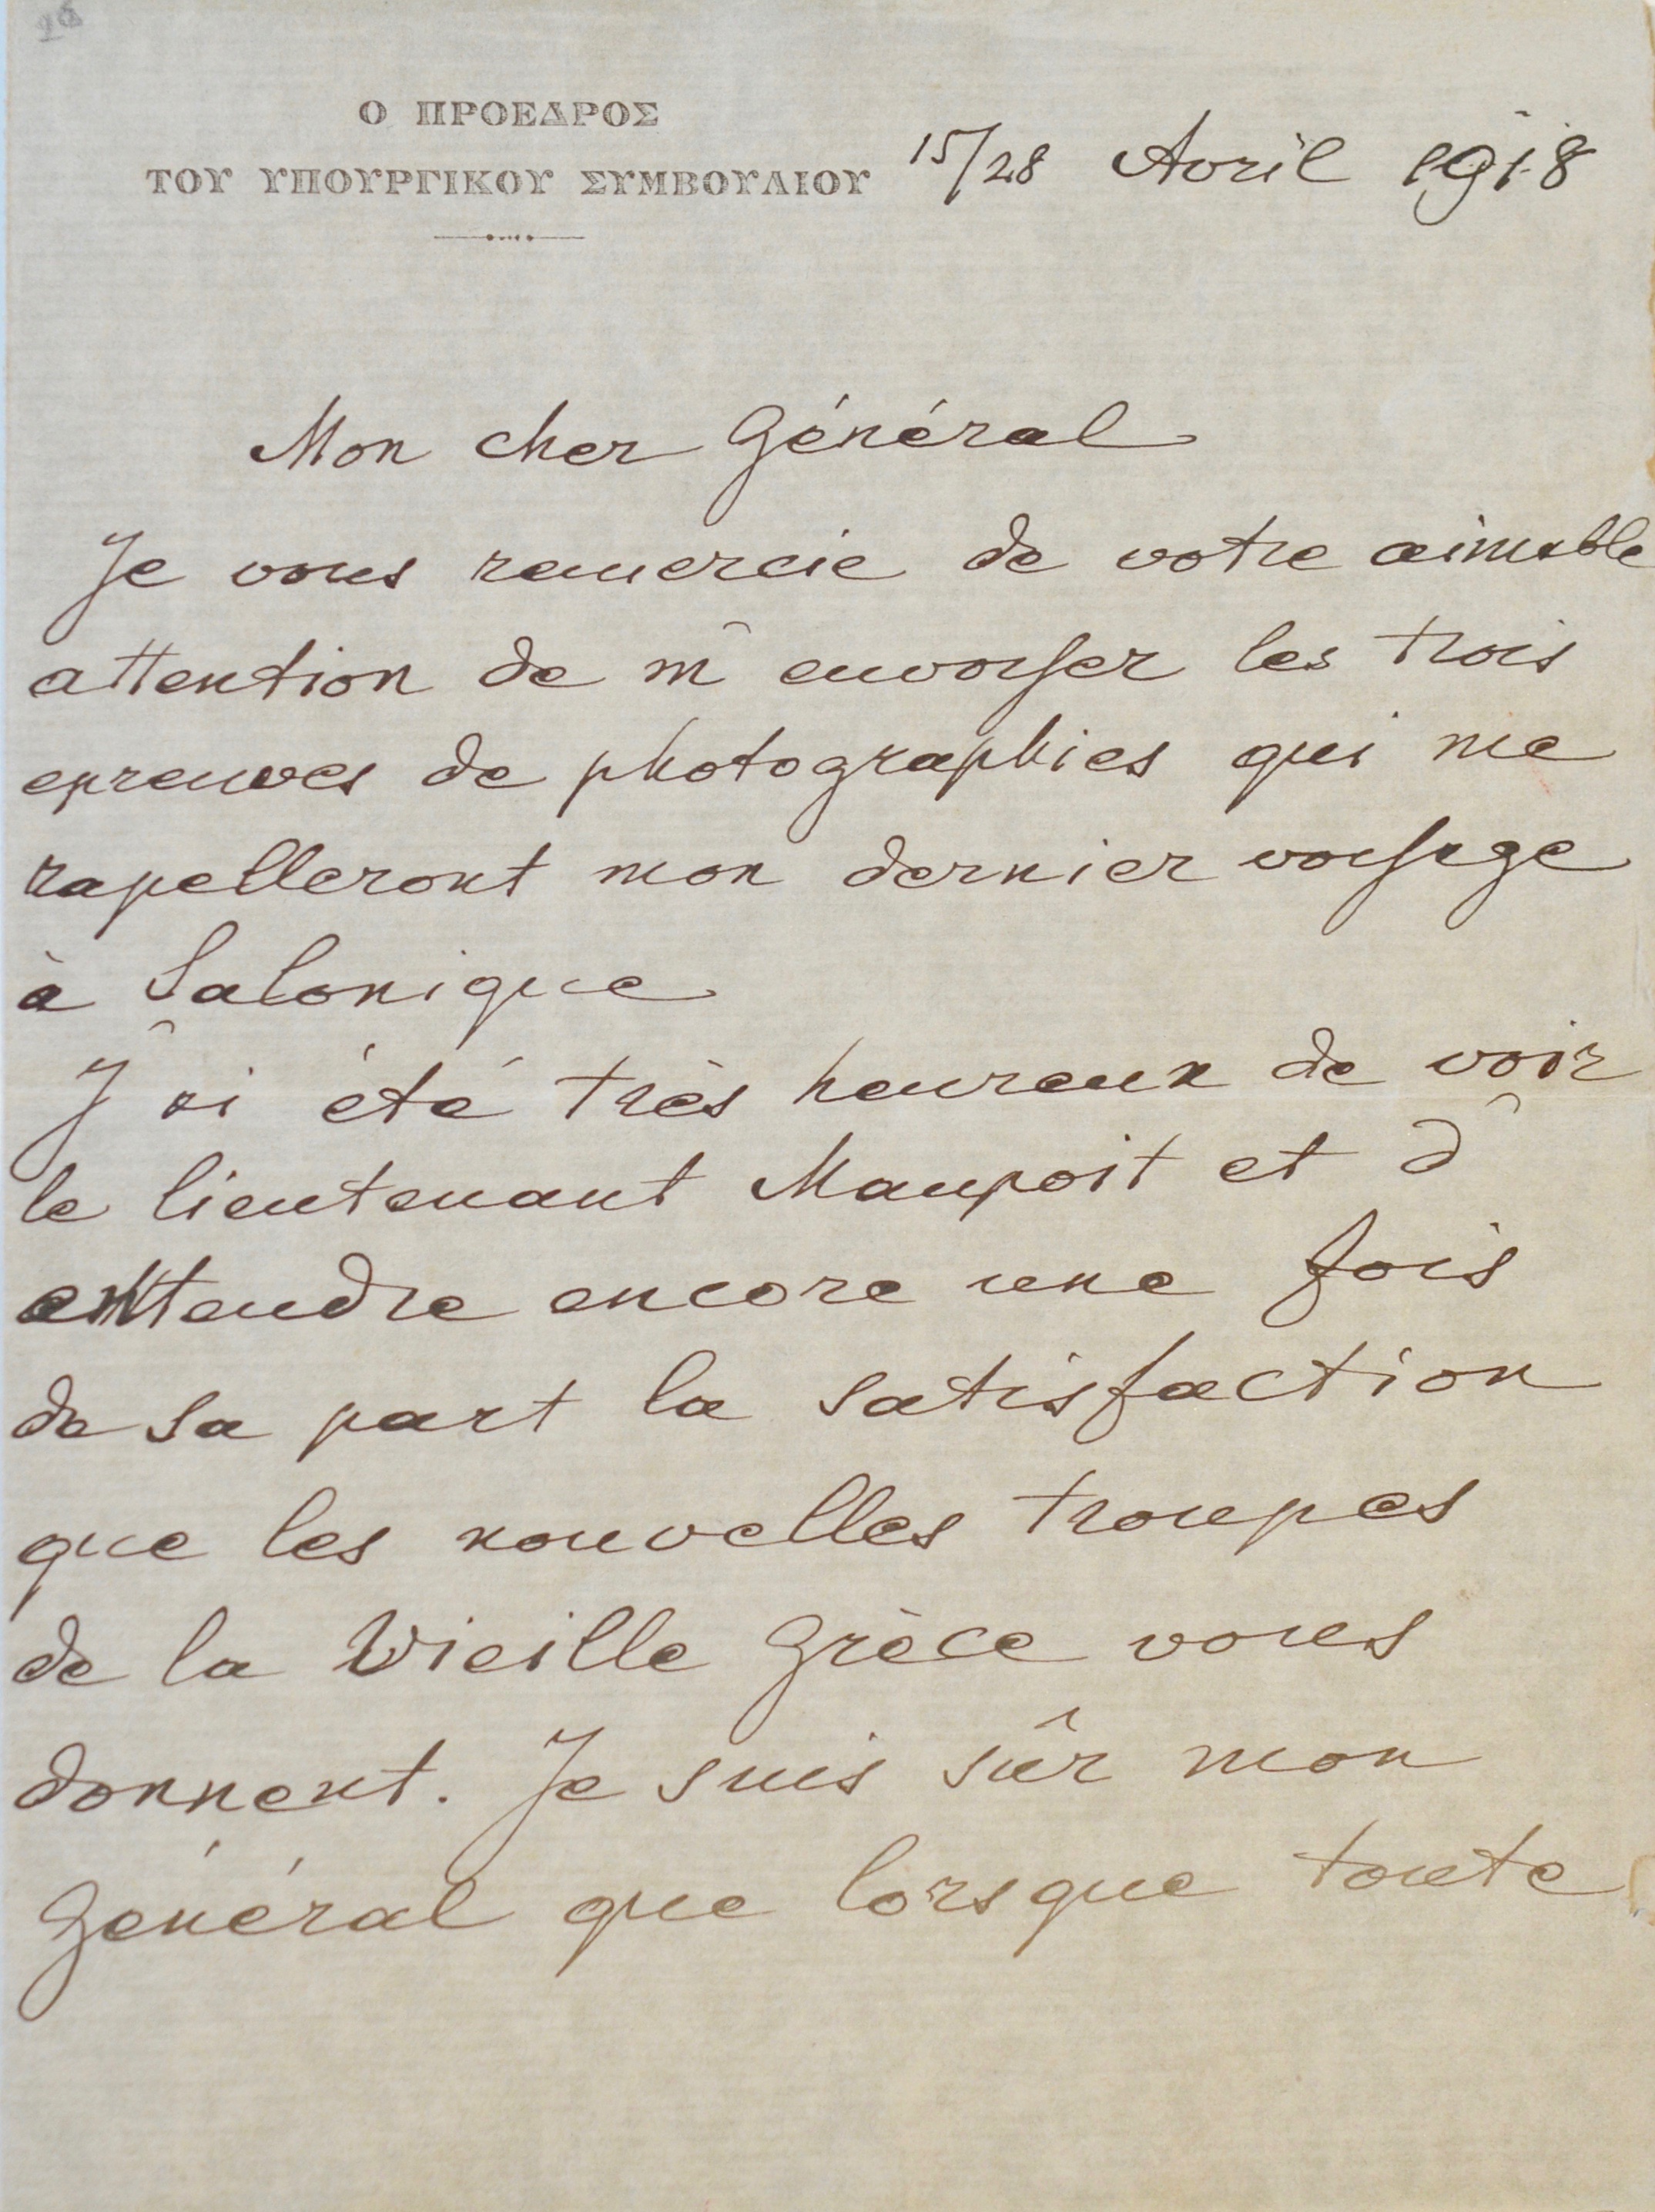 Ο ΠΡΟΕΔΡΟΣ
ΤΟΥ ΥΠΟΥΡΓΙΚΟΥ ΣΥΜΒΟΥΛΙΟΥ
15/28 Avril 1918
Mon cher Général
Je vous remercie de votre aimable
attention de m'envoyer les trois
epreuves de photographies qui me
rapelleront mon dernier voyage
à Salonique
J'ai été très heureux de voir
le lieutenant Maupoit et d'
entendre encore une fois
de sa part la satisfaction
que les nouvelles troupes
de la Vieille Grèce vous
donnent. Je suis sûr mon
Général que lorsque toute